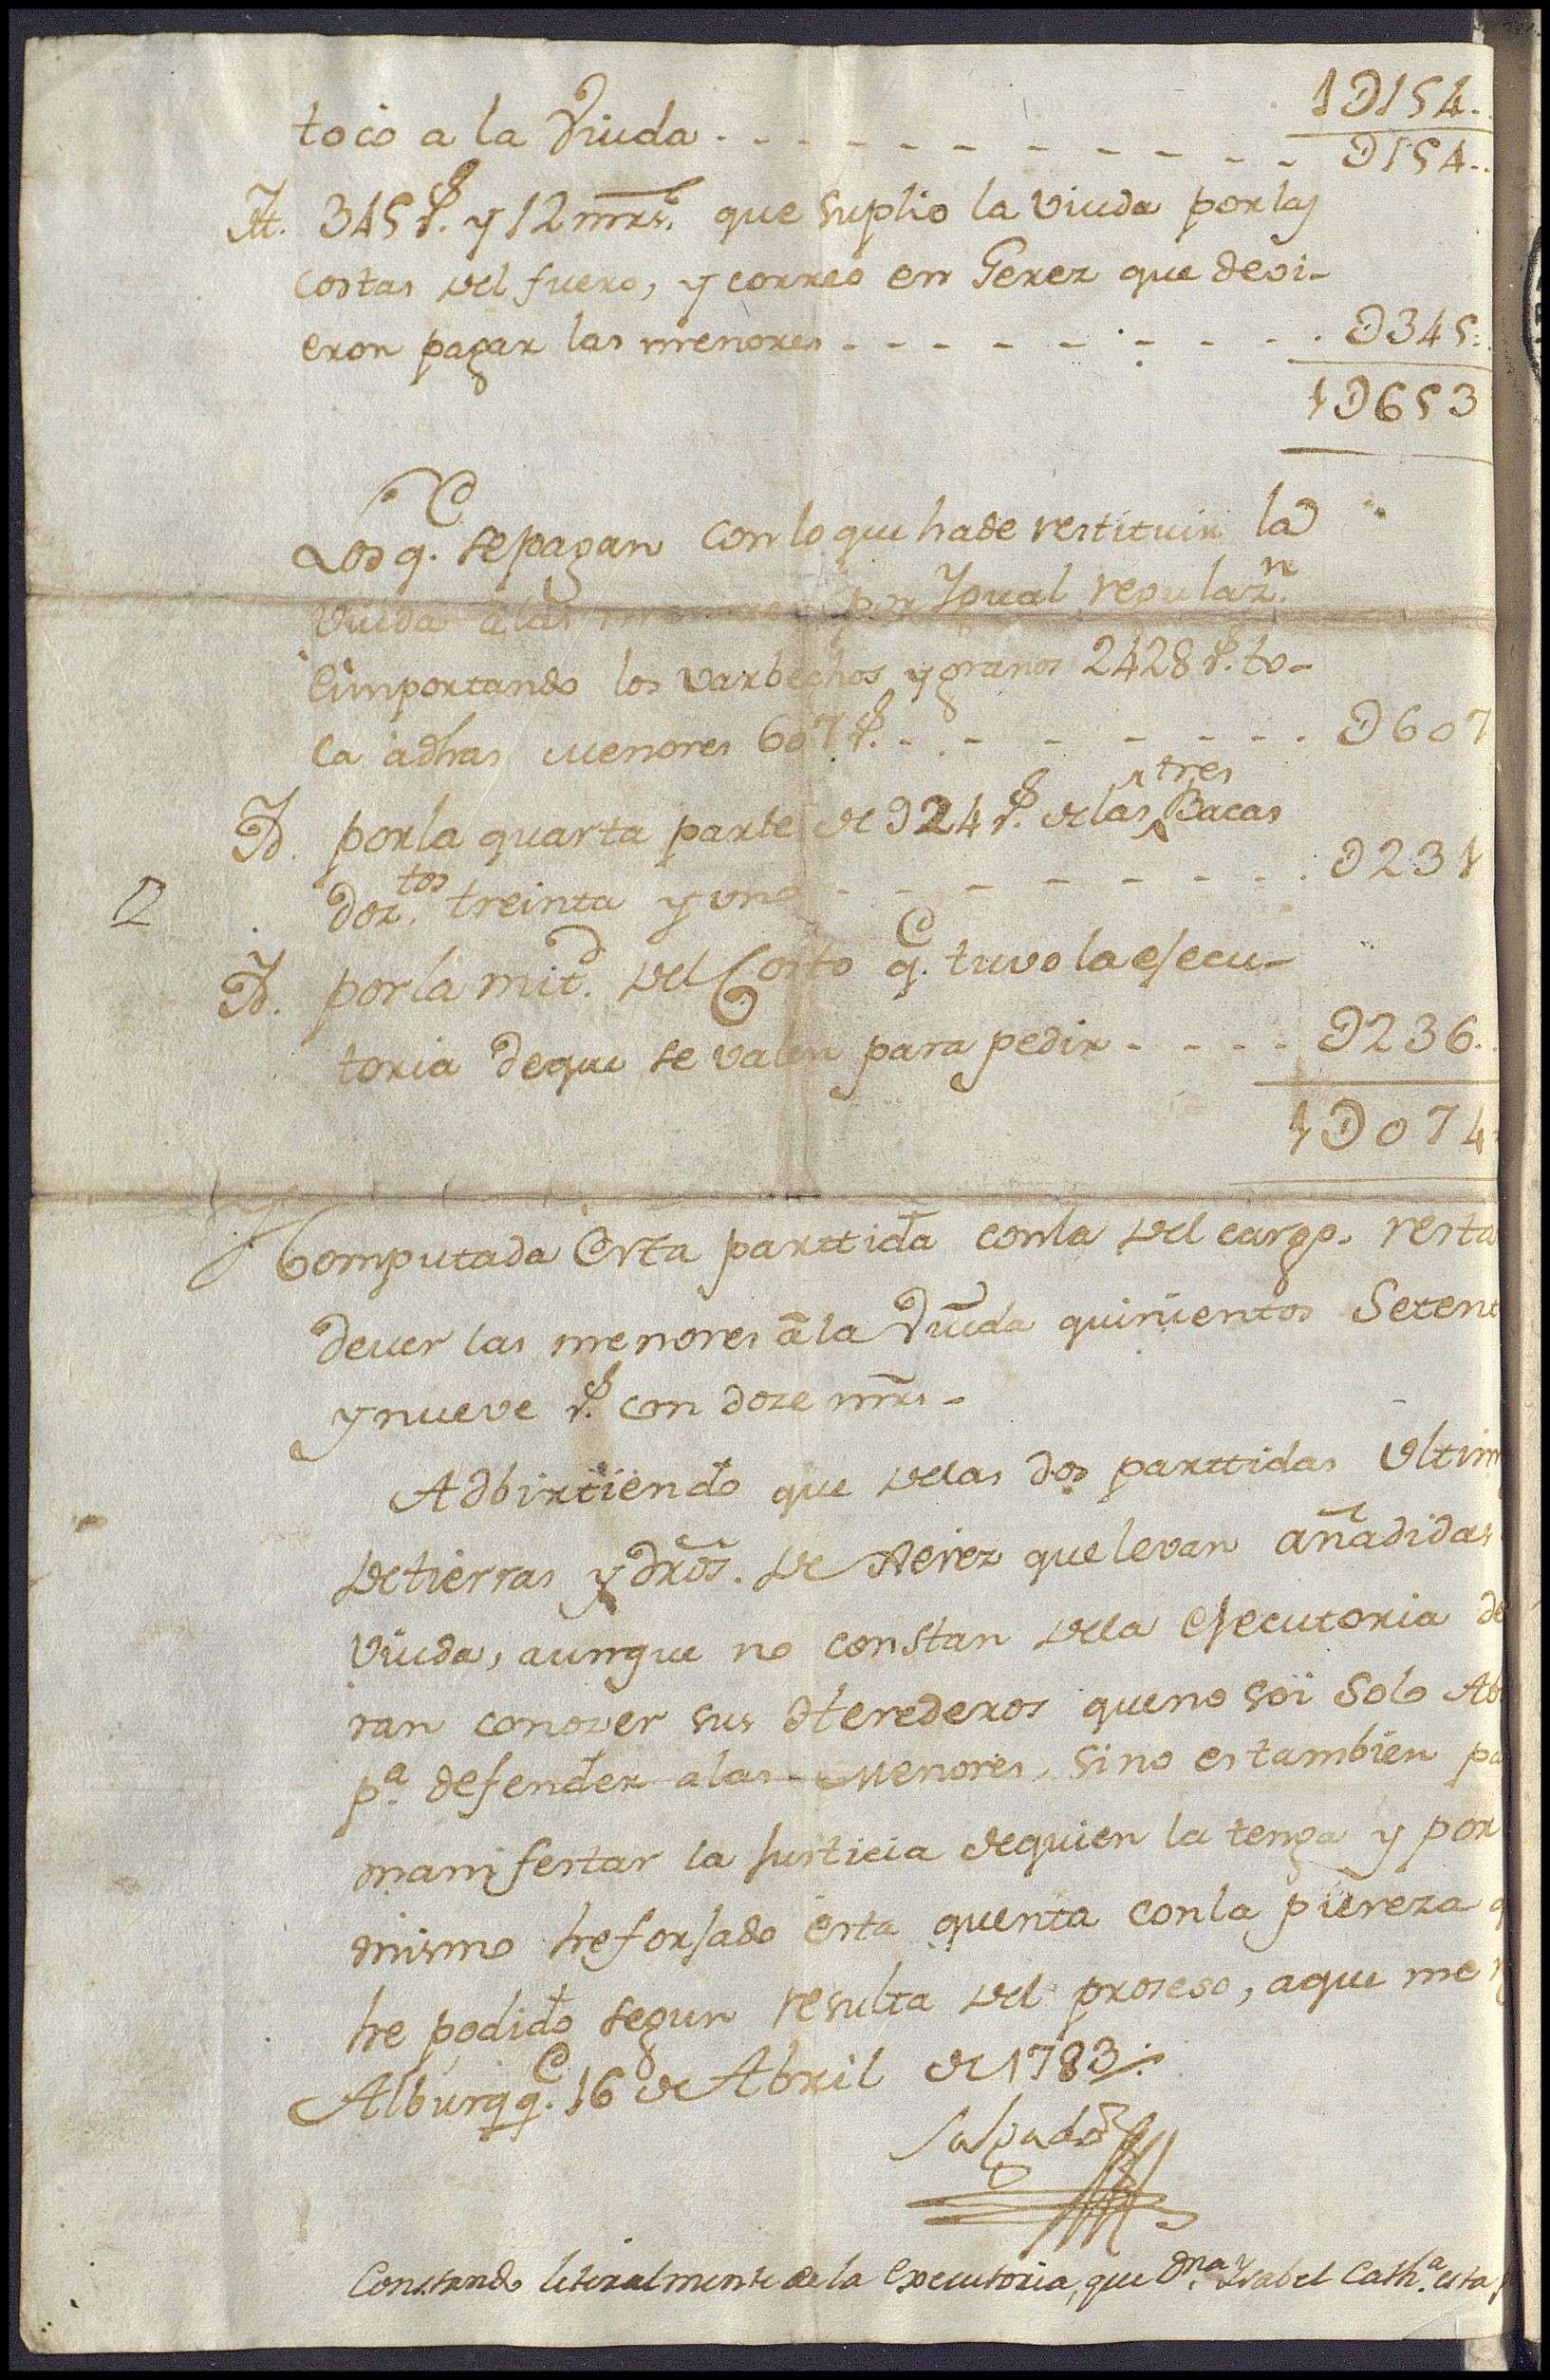 1D154..
toco a la Viuda - - - - - - - - - - - - D154..
It. 345 rs. y 12 mrs. que suplio la viuda por las
costas del fuero, y correo en Gerez que devi-
eron pagar las menores - - - - - - - - - D345..
1D653
Los q.e se pagan con lo que ha de restituir la
Viuda a las por Igual regulaz.n
e importando los varbechos y granos 2428 rs. to-
ca a dhas menores 607 rs. - - - - - - - - D607
Yd. por la quarta parte de 924 rs. de las tres Bacas
doz.tos treinta y uno - - - - - - - - D231
2
Yd. por la mit.d del Costo q.e tuvo la ejecu-
toria de que se valen para pedir - - - - D236..
1D074.
Computada Esta parttida con la del cargo. resta
dever las menores a la Viuda quinientos Setent
y nueve rs. con doze mrs -
Adbirtiendo que de las dos parttidas Ultim
de tierras y dros. de Xerez que levan añadidas
Viuda, aunque no constan de la ejecutoria de
ran conozer sus Herederos que no soi Solo Ab
p.a defender a las Menores, sino es tambien pa
manifestar la Justicia de quien la tenga y por
mismo he forjado esta quenta con la piereza q
he podido segun resulta del prozeso, a que me
Alburqq.e 16 de Abril de 1783.
Salgado
Constando literalmente de la Executoria, que Dna. Ysabel Cath.a esta